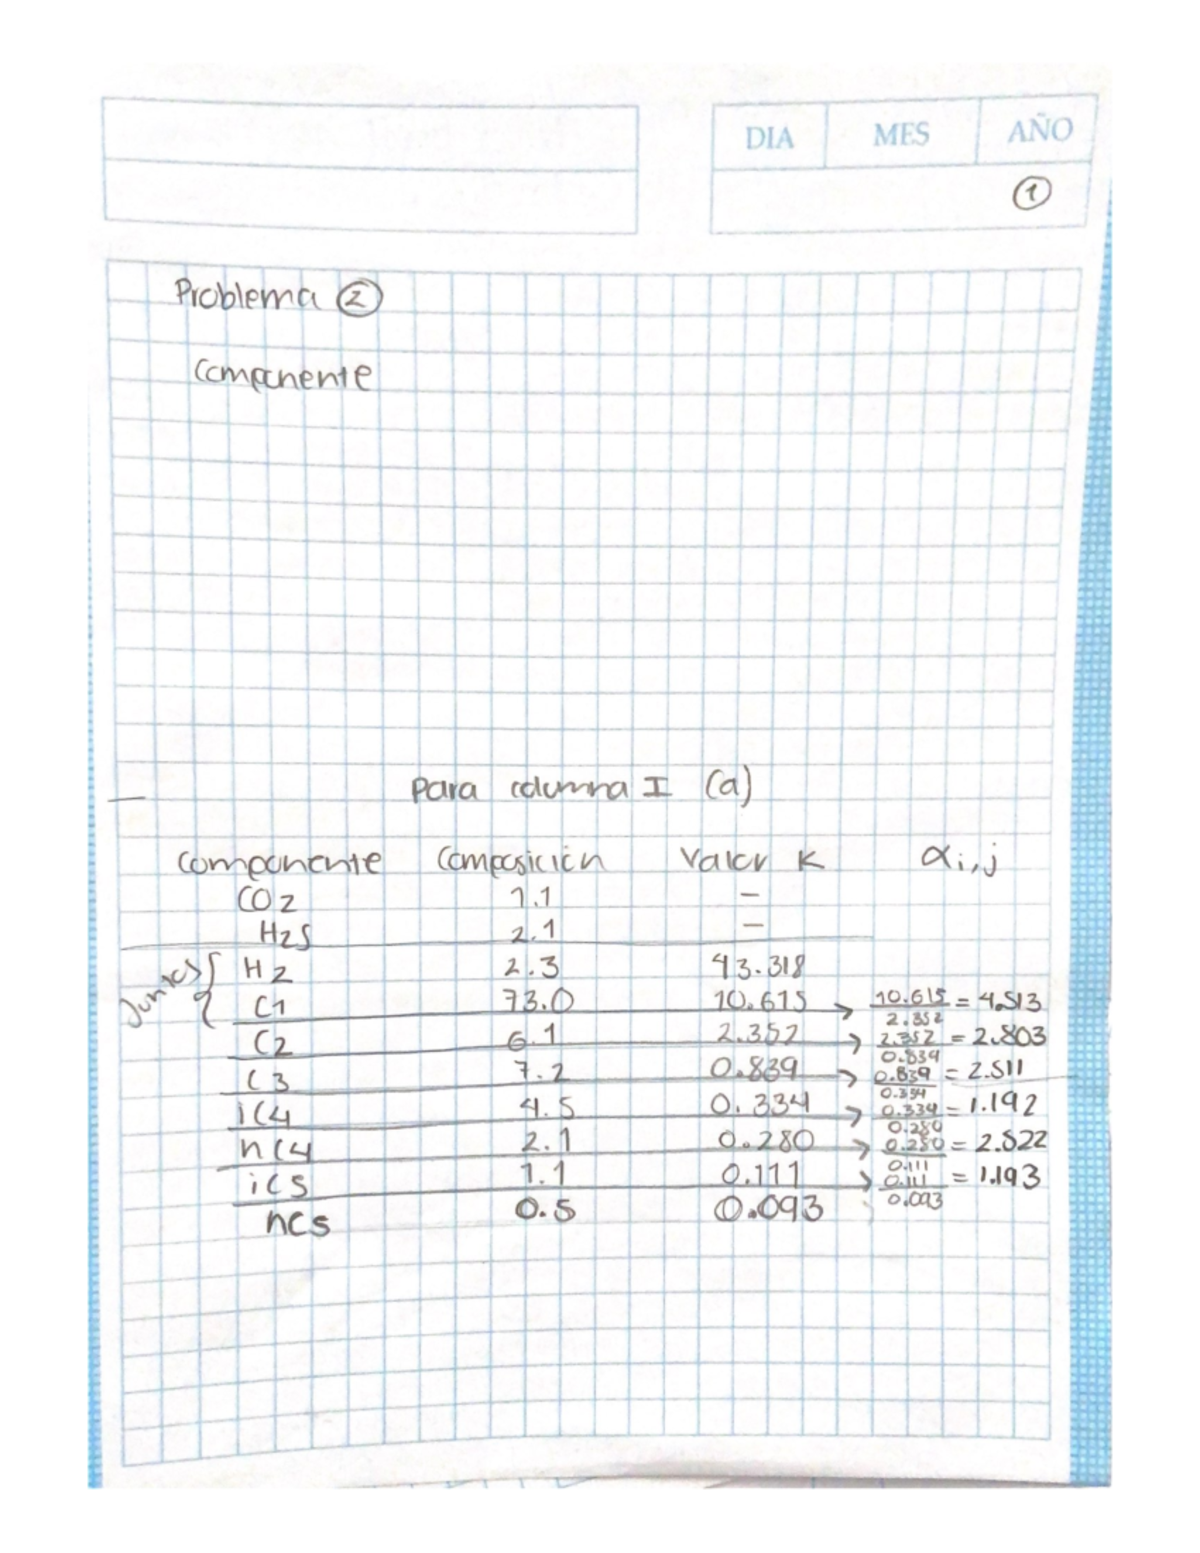 DIA MES AÑO
①
Problema ②
Componente
Para columna I (a)
Componente Composición Valor K αi,j
CO2 1.1 –
H2S 2.1 –
Juntos { H2 2.3 43.318
C1 73.0 10.615 → 10.615/2.352 = 4.513
C2 6.1 2.352 → 2.352/0.839 = 2.803
C3 7.2 0.839 → 0.839/0.334 = 2.511
iC4 4.5 0.334 → 0.334/0.280 = 1.192
nC4 2.1 0.280 → 0.280/0.111 = 2.522
iC5 1.1 0.111 → 0.111/0.093 = 1.193
nC5 0.5 0.093